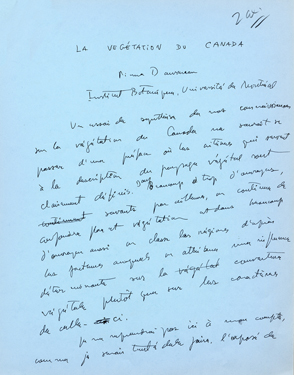 LA VEGÉTATION DU CANADA
Pierre Dansereau
Institut Botanique, Université de Montréal
Un essai de synthèse de nos connaissances
sur la végétation du Canada ne saurait se
passer d'une préface où les critères qui servent
à la description du paysage végétal sont
clairement définis. Dans beaucoup trop d'ouvrages,
savants par ailleurs, on continue de
confondre flore et végétation et dans beaucoup
d'ouvrages aussi on classe les régions d'après
les facteurs auxquels on attribue une influence
déterminante sur la végétat couverture
végétale plutôt que sur les caractères
de celle-ci.
Je ne reprendrai pas ici à mon compte,
comme je serais tenté de le faire, l'exposé de